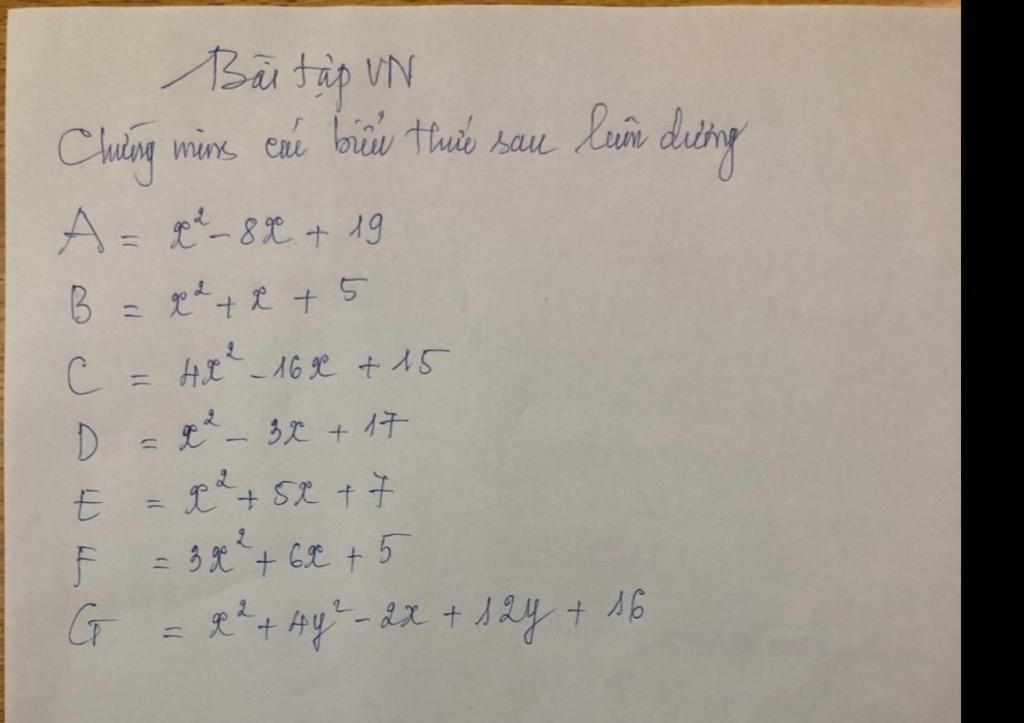 Bài tập VN
Chứng minh các biểu thức sau luôn dương
A = x² - 8x + 19
B = x² + x + 5
C = 4x² - 16x + 15
D = x² - 3x + 17
E = x² + 5x + 7
F = 3x² + 6x + 5
G = x² + 4y² - 2x + 12y + 16